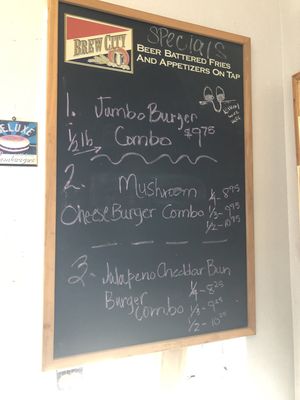 BREW CITY
Specials
BEER BATTERED FRIES
AND APPETIZERS ON TAP
1. Jumbo Burger
1/2 lb. Combo $9.75
2. Mushroom
Cheese Burger Combo
1/4 - 8.95
1/3 - 9.95
1/2 - 10.95
3- Jalapeno Cheddar Bun
Burger
Combo
1/4 - 8.25
1/3 - 9.25
1/2 - 10.25
DELUXE